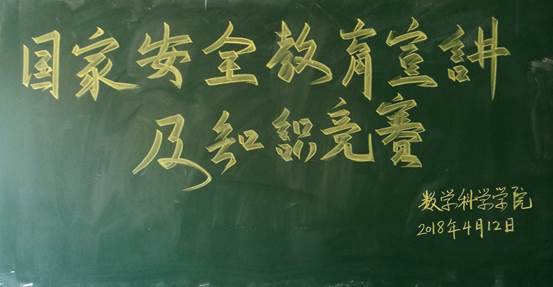 国家安全教育宣讲
及知识竞赛
数学科学学院
2018年4月12日